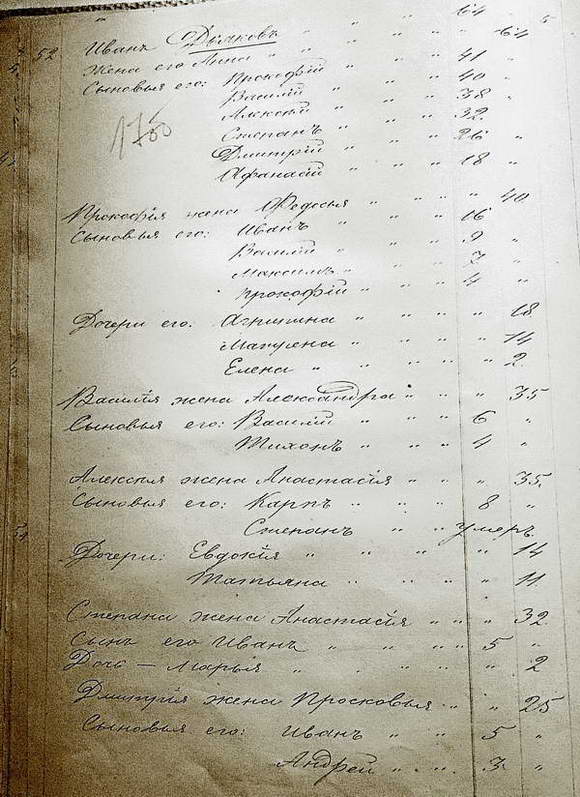 52 Иванъ Дымковъ " " " 64
Жена его Анна " " " " " 64
Сыновья его: Прокофій " " " 41 "
Василій " " " 40 "
Алексѣй " " " 38 "
Степанъ " " " 32 "
Дмитрій " " " 26 "
Афанасій " " " 18 "
Прокофія жена Федосья " " " " 40
Сыновья его: Иванъ " " " 16 "
Василій " " " 9 "
Максимъ " " " 7 "
Прокофій " " " 4 "
Дочери его: Агрипина " " " " 18
Матрена " " " " 14
Елена " " " " 2
Василія жена Александра " " " 35
Сыновья его: Василій " " 6 "
Тихонъ " " 4 "
Алексѣя жена Анастасія " " " 35
Сыновья его: Карпъ " " " 8 "
Степанъ " " умеръ
Дочери: Евдокія " " " " " 14
Татьяна " " " " 11
Степана жена Анастасія " " " 32
Сынъ его Иванъ " " " " 5 "
Дочь — Марья " " " " 2
Дмитрія жена Просковья " " 25
Сыновья его: Иванъ " " 5 "
Андрей " " " 3 "